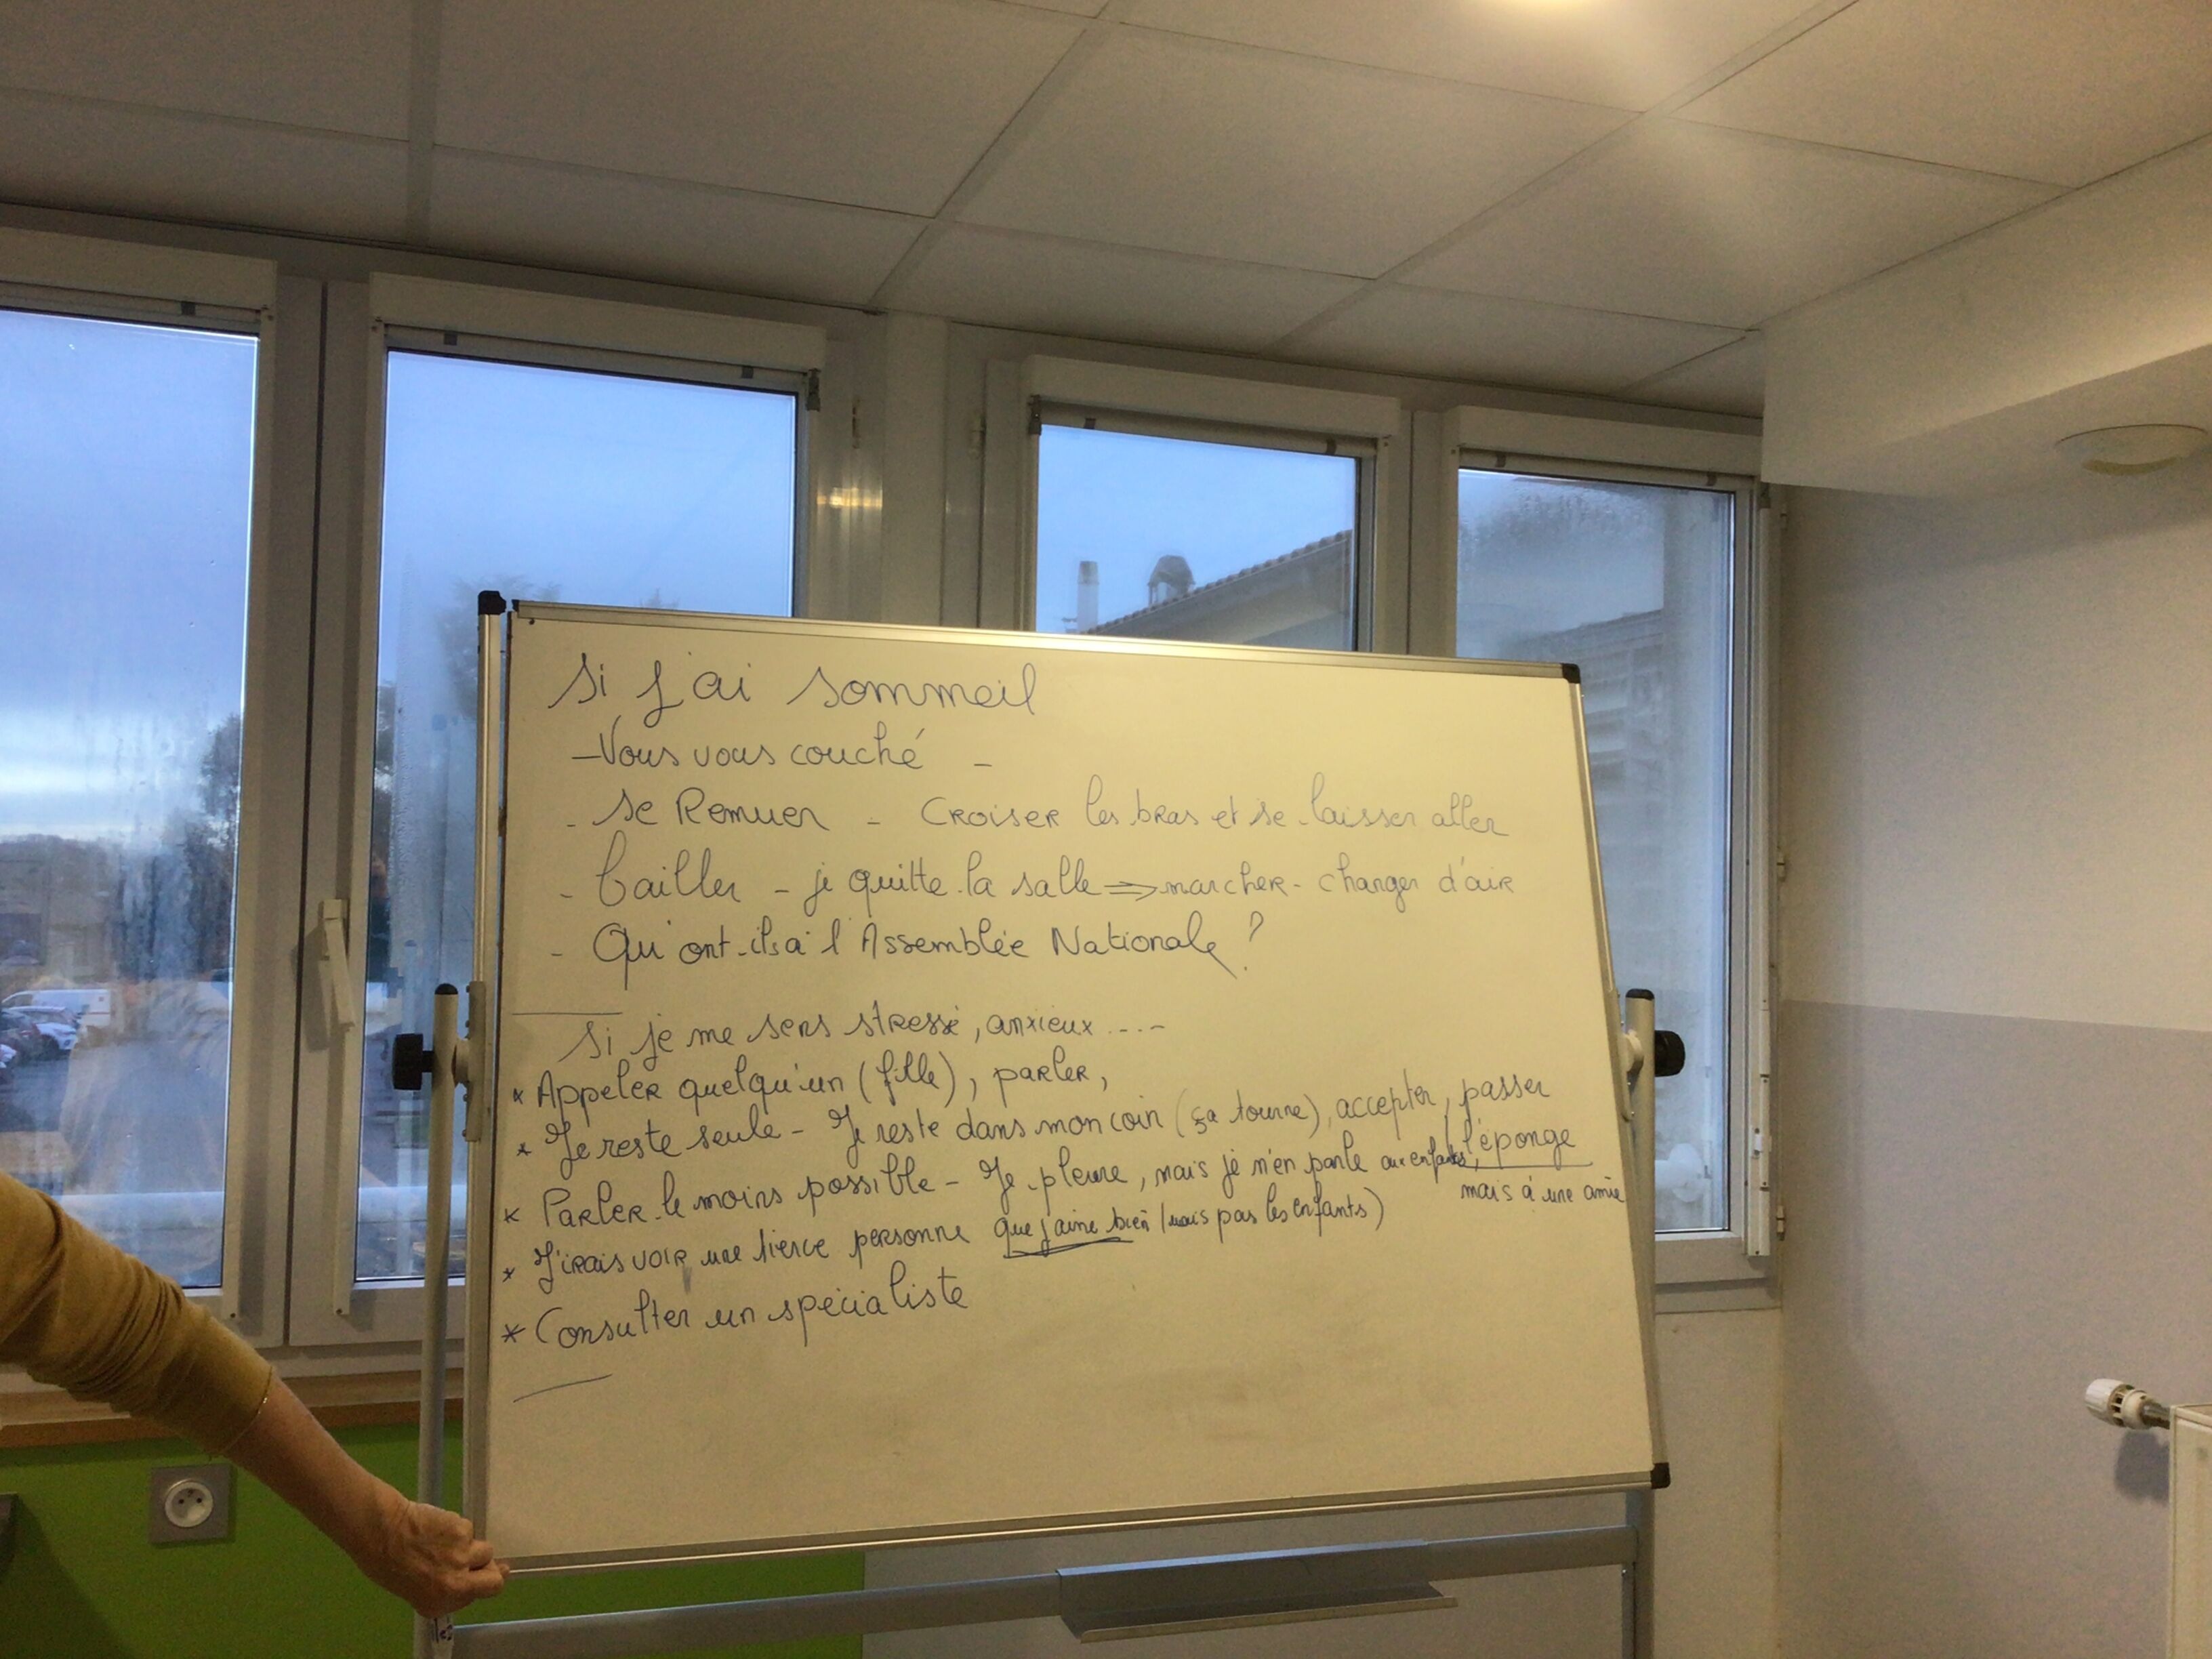 Si j'ai sommeil
- Vous vous couché -
- Se Remuer - CROISER les bras et se laisser aller
- bailler - je quitte la salle => marcher - changer d'air
- Qu'ont-ils à l'Assemblée Nationale ?
Si je me sens stressé, anxieux ....
* Appeler quelqu'un (fille), parler,
* Je reste seule - Je reste dans mon coin (ça tourne), accepter, passer l'éponge
* Parler le moins possible - Je pleure, mais je n'en parle aux enfants, mais à une amie
* J'irais voir une tierce personne que j'aime bien (mais pas les enfants)
* Consulter un spécialiste